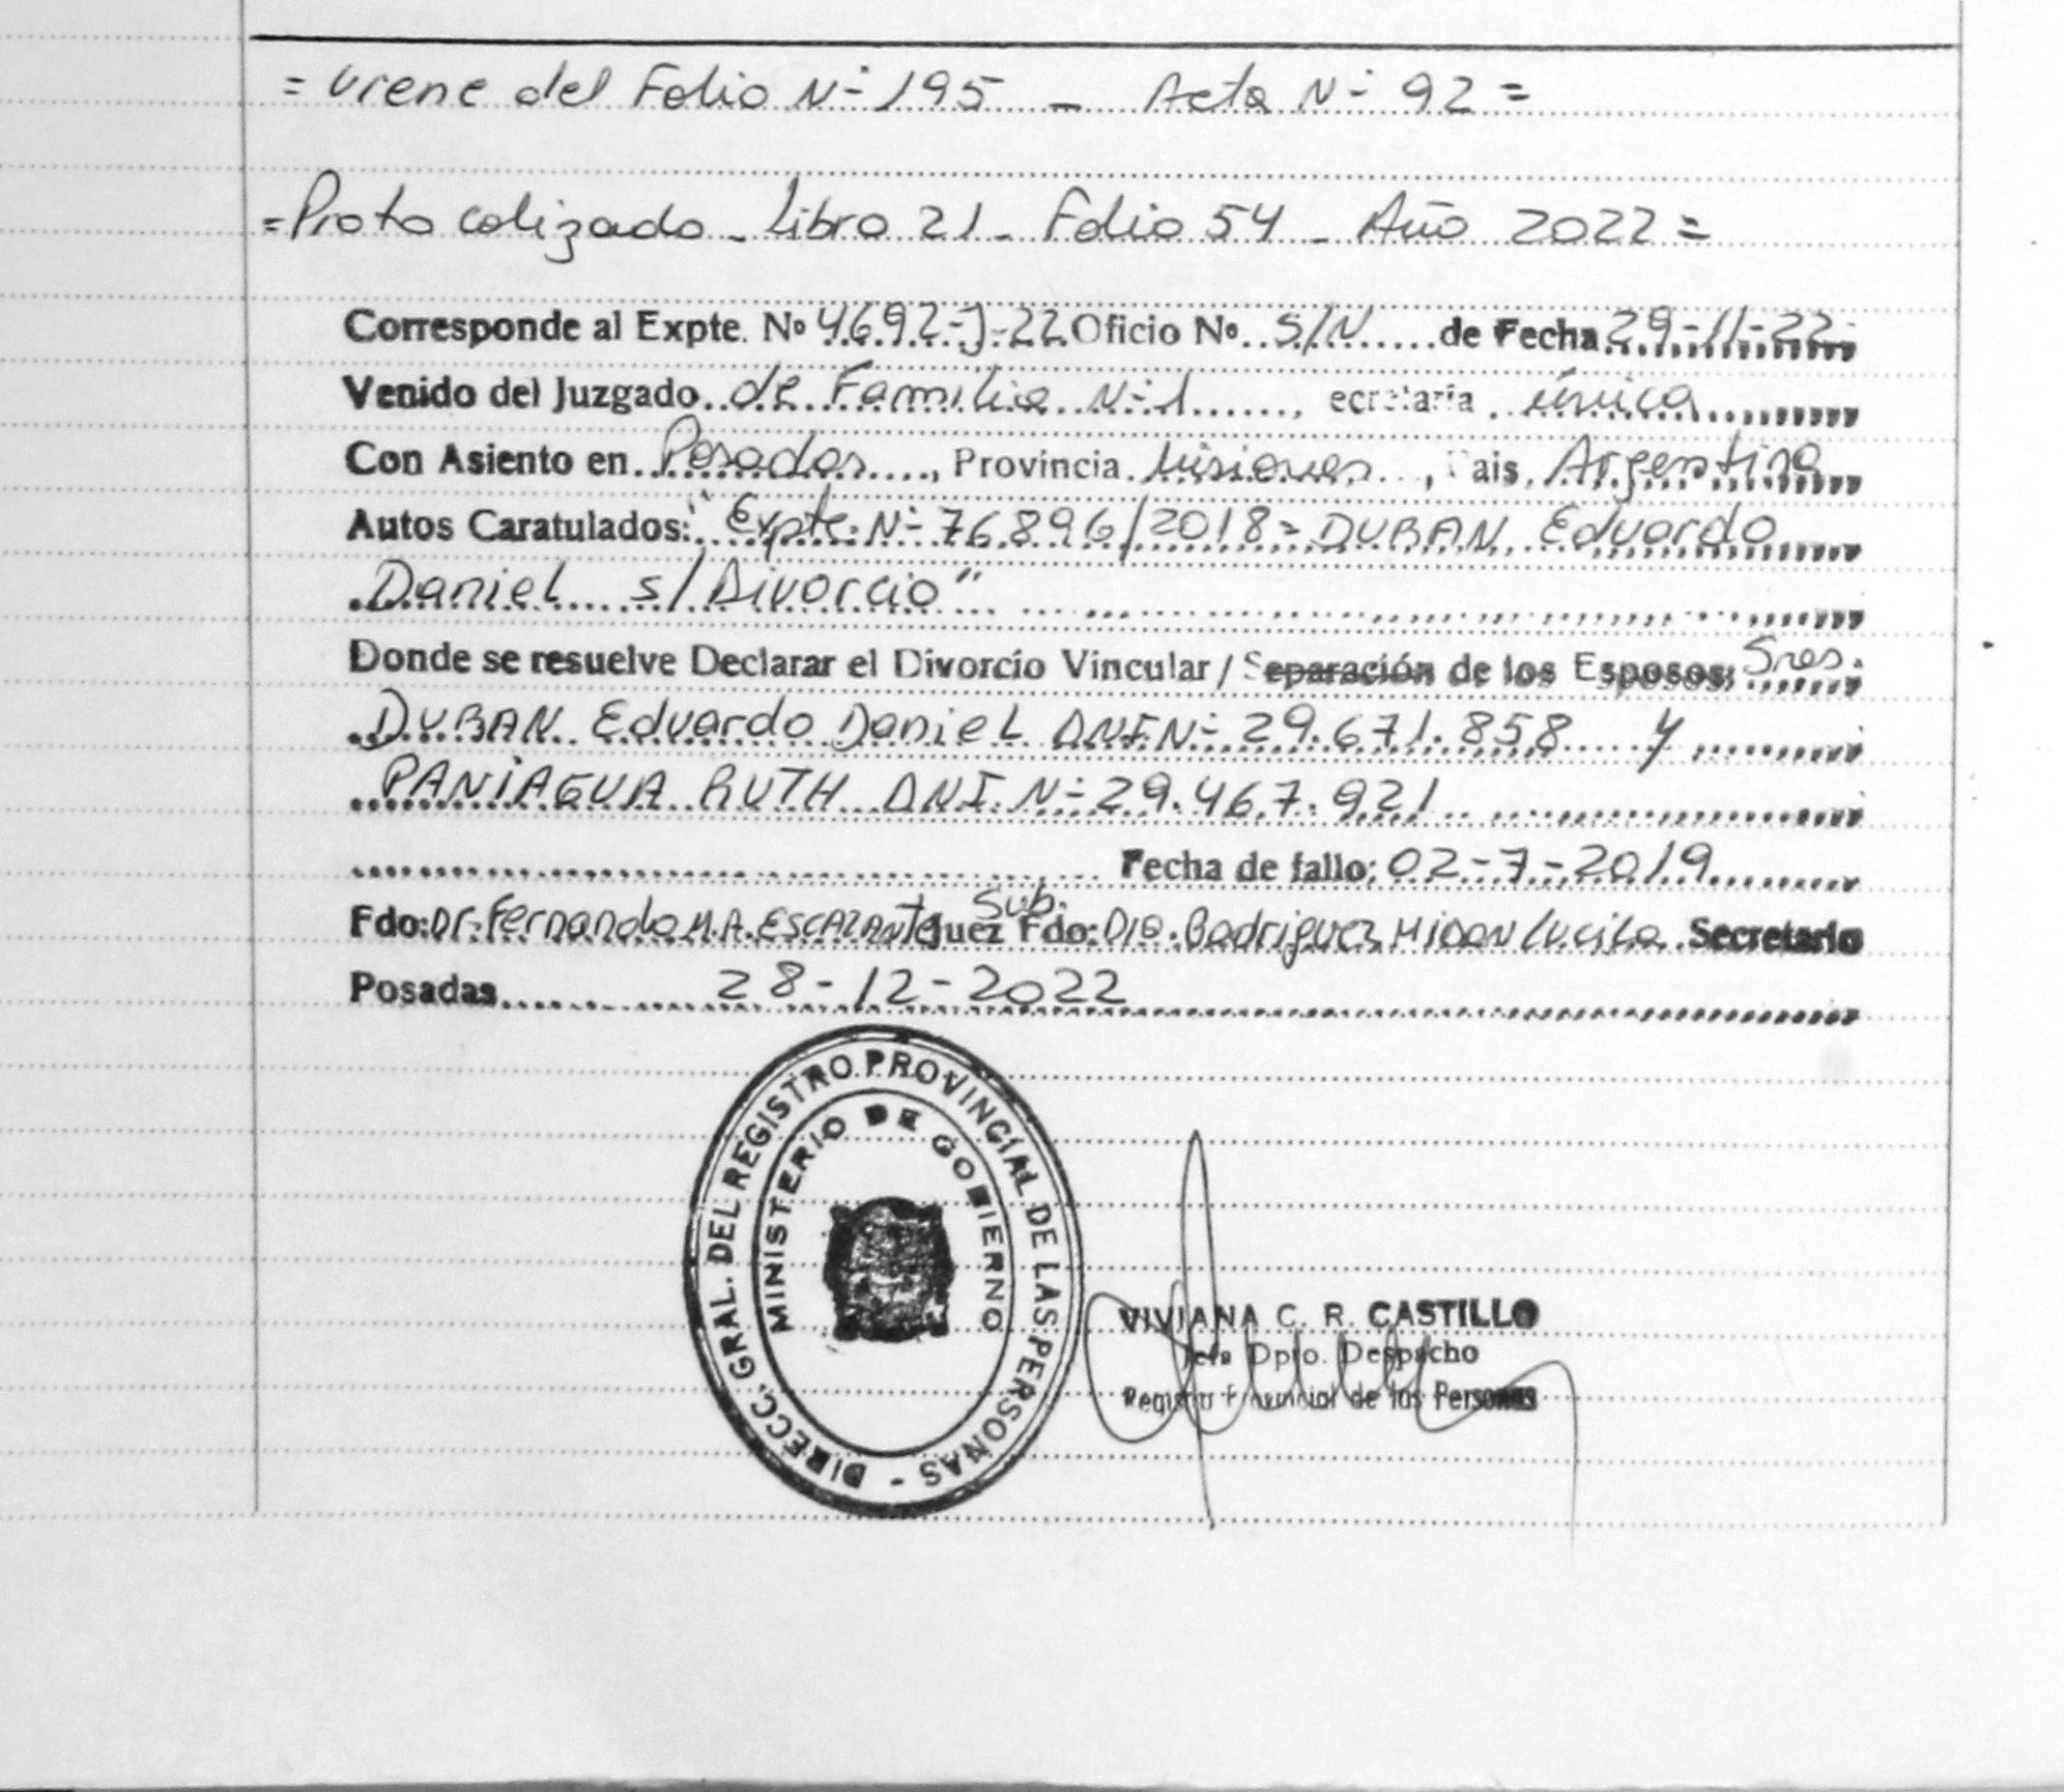 = Viene del Folio N- 195 - Acta N- 92 =
= Protocolizado - Libro 21 - Folio 54 - Año 2022 =
Corresponde al Expte. Nº 4692-J-22 Oficio Nº S/N de Fecha 29-11-22-
Venido del Juzgado de Familia N-1, ecretaría única
Con Asiento en Posadas, Provincia Misiones, Pais Argentina
Autos Caratulados: "Expte. N- 76.896/2018 - DURAN Eduardo
Daniel s/Divorcio"
Donde se resuelve Declarar el Divorcio Vincular / Separación de los Esposos; Sres.
DURAN Eduardo Daniel DNI N- 29.671.858 y
PANIAGUA RUTH DNI. N- 29.467.921
Fecha de fallo: 02-7-2019
Sub.
Fdo: Dr. Fernando M.A. ESCALANTE Juez Fdo: Dra. Rodriguez Lucila Secretario
Posadas 28-12-2022
DIRECC. GRAL. DEL REGISTRO PROVINCIAL DE LAS PERSONAS -
MINISTERIO DE GOBIERNO
VIVIANA C. R. CASTILLO
Jefa Dpto. Despacho
Registro Provincial de las Personas